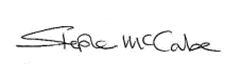 Stephen McCabe